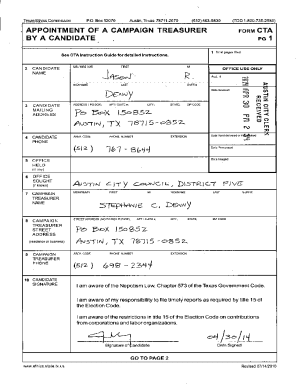 Texas Ethics Commission P.O. Box 12070 Austin, Texas 78711-2070 (512) 463-5800 (TDD 1-800-735-2989)
APPOINTMENT OF A CAMPAIGN TREASURER
BY A CANDIDATE
FORM CTA
PG 1
See CTA Instruction Guide for detailed instructions.
1 Total pages filed:
2 CANDIDATE NAME
MS/MRS/MR FIRST MI
JASON R.
NICKNAME LAST SUFFIX
DENNY
OFFICE USE ONLY
AUSTIN CITY CLERK
RECEIVED
APR 30 PM 2
3 CANDIDATE MAILING ADDRESS
ADDRESS / PO BOX; APT / SUITE #; CITY; STATE; ZIP CODE
PO BOX 150852
AUSTIN, TX 78715-0852
4 CANDIDATE PHONE
AREA CODE PHONE NUMBER EXTENSION
(512) 787-8644
Date Processed
5 OFFICE HELD
(if any)
Date Imaged
6 OFFICE SOUGHT
(if known)
AUSTIN CITY COUNCIL, DISTRICT FIVE
7 CAMPAIGN TREASURER NAME
MS/MRS/MR FIRST MI NICKNAME LAST SUFFIX
STEPHANIE C. DENNY
8 CAMPAIGN TREASURER STREET ADDRESS
(residence or business)
STREET ADDRESS (NO PO BOX PLEASE); APT / SUITE #; CITY; STATE; ZIP CODE
PO BOX 150852
AUSTIN, TX 78715-0852
9 CAMPAIGN TREASURER PHONE
AREA CODE PHONE NUMBER EXTENSION
(512) 698-2344
10 CANDIDATE SIGNATURE
I am aware of the Nepotism Law, Chapter 573 of the Texas Government Code.
I am aware of my responsibility to file timely reports as required by title 15 of
the Election Code.
I am aware of the restrictions in title 15 of the Election Code on contributions
from corporations and labor organizations.
04/30/14
Signature of Candidate Date Signed
GO TO PAGE 2
www.ethics.state.tx.us Revised 07/14/2010